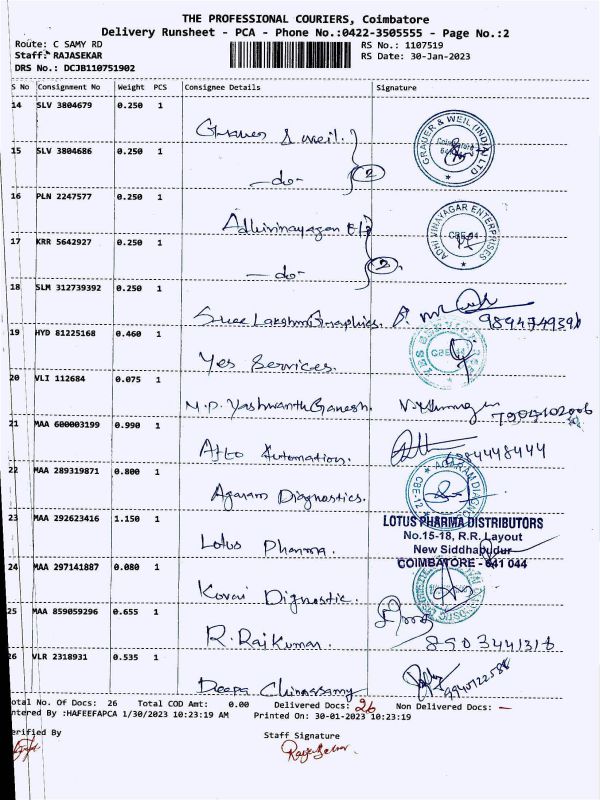 THE PROFESSIONAL COURIERS, Coimbatore
Delivery Runsheet - PCA - Phone No.:0422-3505555 - Page No.:2
Route: C SAMY RD
RS No.: 1107519
Staff: RAJASEKAR
RS Date: 30-Jan-2023
DRS No.: DCJB110751902
S No Consignment No Weight PCS Consignee Details Signature
14 SLV 3804679 0.250 1
Grauer & weil.
GRAUER & WEIL (INDIA) LTD
15 SLV 3804686 0.250 1
-do- 2
16 PLN 2247577 0.250 1
ADHI VINAYAGAR ENTERPRISES
17 KRR 5642927 0.250 1
-do- 2
18 SLM 312739392 0.250 1
Sree Lakshmi Graphics.
19 HYD 81225168 0.460 1
Yes Services.
20 VLI 112684 0.075 1
M.P. Yashwanth Ganesh.
21 MAA 600003199 0.990 1
Automation.
22 MAA 289319871 0.800 1
Agaram Diagnostics.
23 MAA 292623416 1.150 1
LOTUS PHARMA DISTRIBUTORS
No.15-18, R.R. Layout
New Siddhapudur
COIMBATORE - 641 044
Lotus Pharma.
24 MAA 297141887 0.080 1
Kovai Dignostic.
25 MAA 859059296 0.655 1
R. Raj Kumar. 8903441316
26 VLR 2318931 0.535 1
Deepa Chinnasamy
otal No. Of Docs: 26 Total COD Amt: 0.00 Delivered Docs: 26 Non Delivered Docs: -
ntered By :HAFEEFAPCA 1/30/2023 10:23:19 AM Printed On: 30-01-2023 10:23:19
erified By Staff Signature